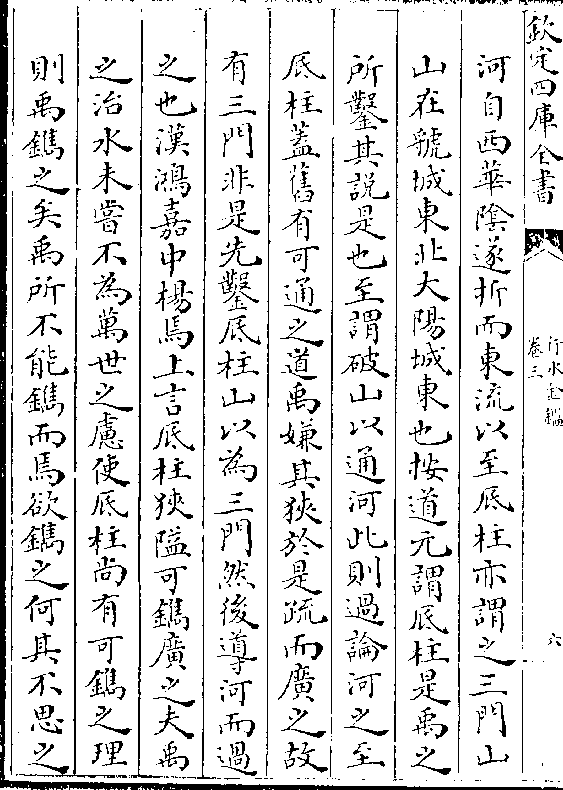 欽定四庫全書
行水金鑑
卷三
六
河自西華隂遂折而東流以至厎柱亦謂之三門山
山在虢城東北大陽城東也按道元謂厎柱是禹之
所鑿其説是也至謂破山以通河此則過論河之至
厎柱葢舊有可通之道禹嫌其狹於是疏而廣之故
有三門非是先鑿厎柱山以為三門然後導河而過
之也漢鴻嘉中楊馬上言厎柱狹隘可鐫廣之夫禹
之治水未嘗不為萬世之慮使厎柱尚有可鐫之理
則禹鐫之矣禹所不能鐫而焉欲鐫之何其不思之